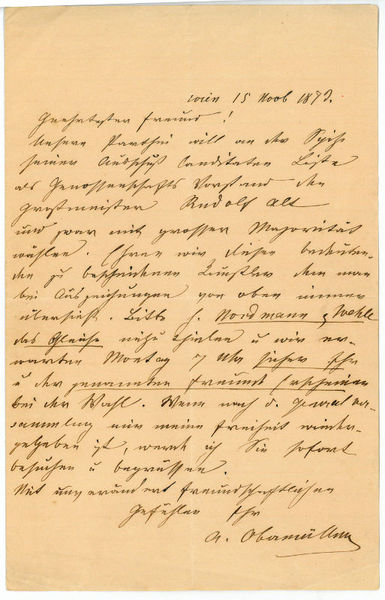 Wien 15 Novb 1892.
Geehrtester Freund!
Unsere Parthei will an der Spitze
seiner Ausschuß Candidaten Liste
als Genossenschafts Vorstand den
Großmeister Rudolf Alt
und zwar mit grosser Majorität
wählen. Ehren wir diesen bedeuten-
den zu bescheidenen Künstler den man
bei Auszeichnungen von oben immer
übersieht. Bitte H. Nordmann, Wehle
das Gleiche mitzutheilen u wir er-
warten Montag 7 Uhr sicher Ihr
u der genannten Freunde Erscheinen
bei der Wahl. Wenn nach d. Generalver-
sammlung mir meine Freiheit wieder-
gegeben ist, werde ich Sie sofort
besuchen u begrüssen.
Mit unverändert freundschaftlichen
Gefühlen Ihr
A. Obermüllner